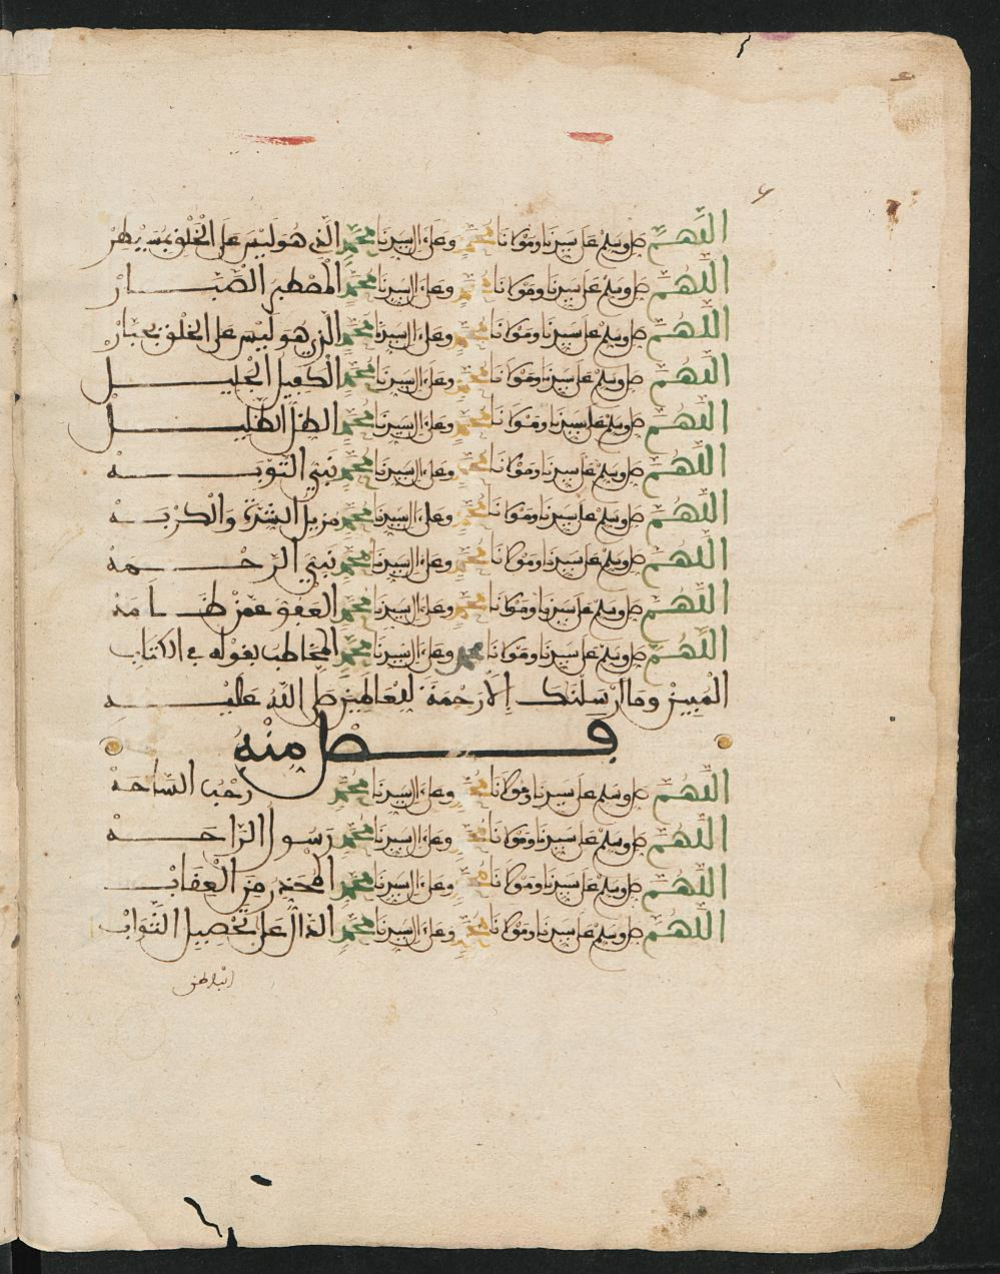 اللهم صل وسلم على سيدنا ومولانا محمد وعلى ءال سيدنا محمد الذي هو ليس على الخلق بمسيطر
اللهم صل وسلم على سيدنا ومولانا محمد وعلى ءال سيدنا محمد المصطبر الصبار
اللهم صل وسلم على سيدنا ومولانا محمد وعلى ءال سيدنا محمد الذي هو ليس على الخلق بجبار
اللهم صل وسلم على سيدنا ومولانا محمد وعلى ءال سيدنا محمد الكفيل الجليل
اللهم صل وسلم على سيدنا ومولانا محمد وعلى ءال سيدنا محمد الظل الظليل
اللهم صل وسلم على سيدنا ومولانا محمد وعلى ءال سيدنا محمد نبي التوبه
اللهم صل وسلم على سيدنا ومولانا محمد وعلى ءال سيدنا محمد مزيل الشدة والكربه
اللهم صل وسلم على سيدنا ومولانا محمد وعلى ءال سيدنا محمد نبي الرحمه
اللهم صل وسلم على سيدنا ومولانا محمد وعلى ءال سيدنا محمد العفو عمن ظلمه
اللهم صل وسلم على سيدنا ومولانا محمد وعلى ءال سيدنا محمد المخاطب بقوله في الكتاب
المبين وما أرسلنك إلا رحمة للعالمين صلى الله عليه
فصل منه
اللهم صل وسلم على سيدنا ومولانا محمد وعلى ءال سيدنا محمد رحب الساحه
اللهم صل وسلم على سيدنا ومولانا محمد وعلى ءال سيدنا محمد رسول الراحه
اللهم صل وسلم على سيدنا ومولانا محمد وعلى ءال سيدنا محمد المحذر من العقاب
اللهم صل وسلم على سيدنا ومولانا محمد وعلى ءال سيدنا محمد الدال على تحصيل الثواب